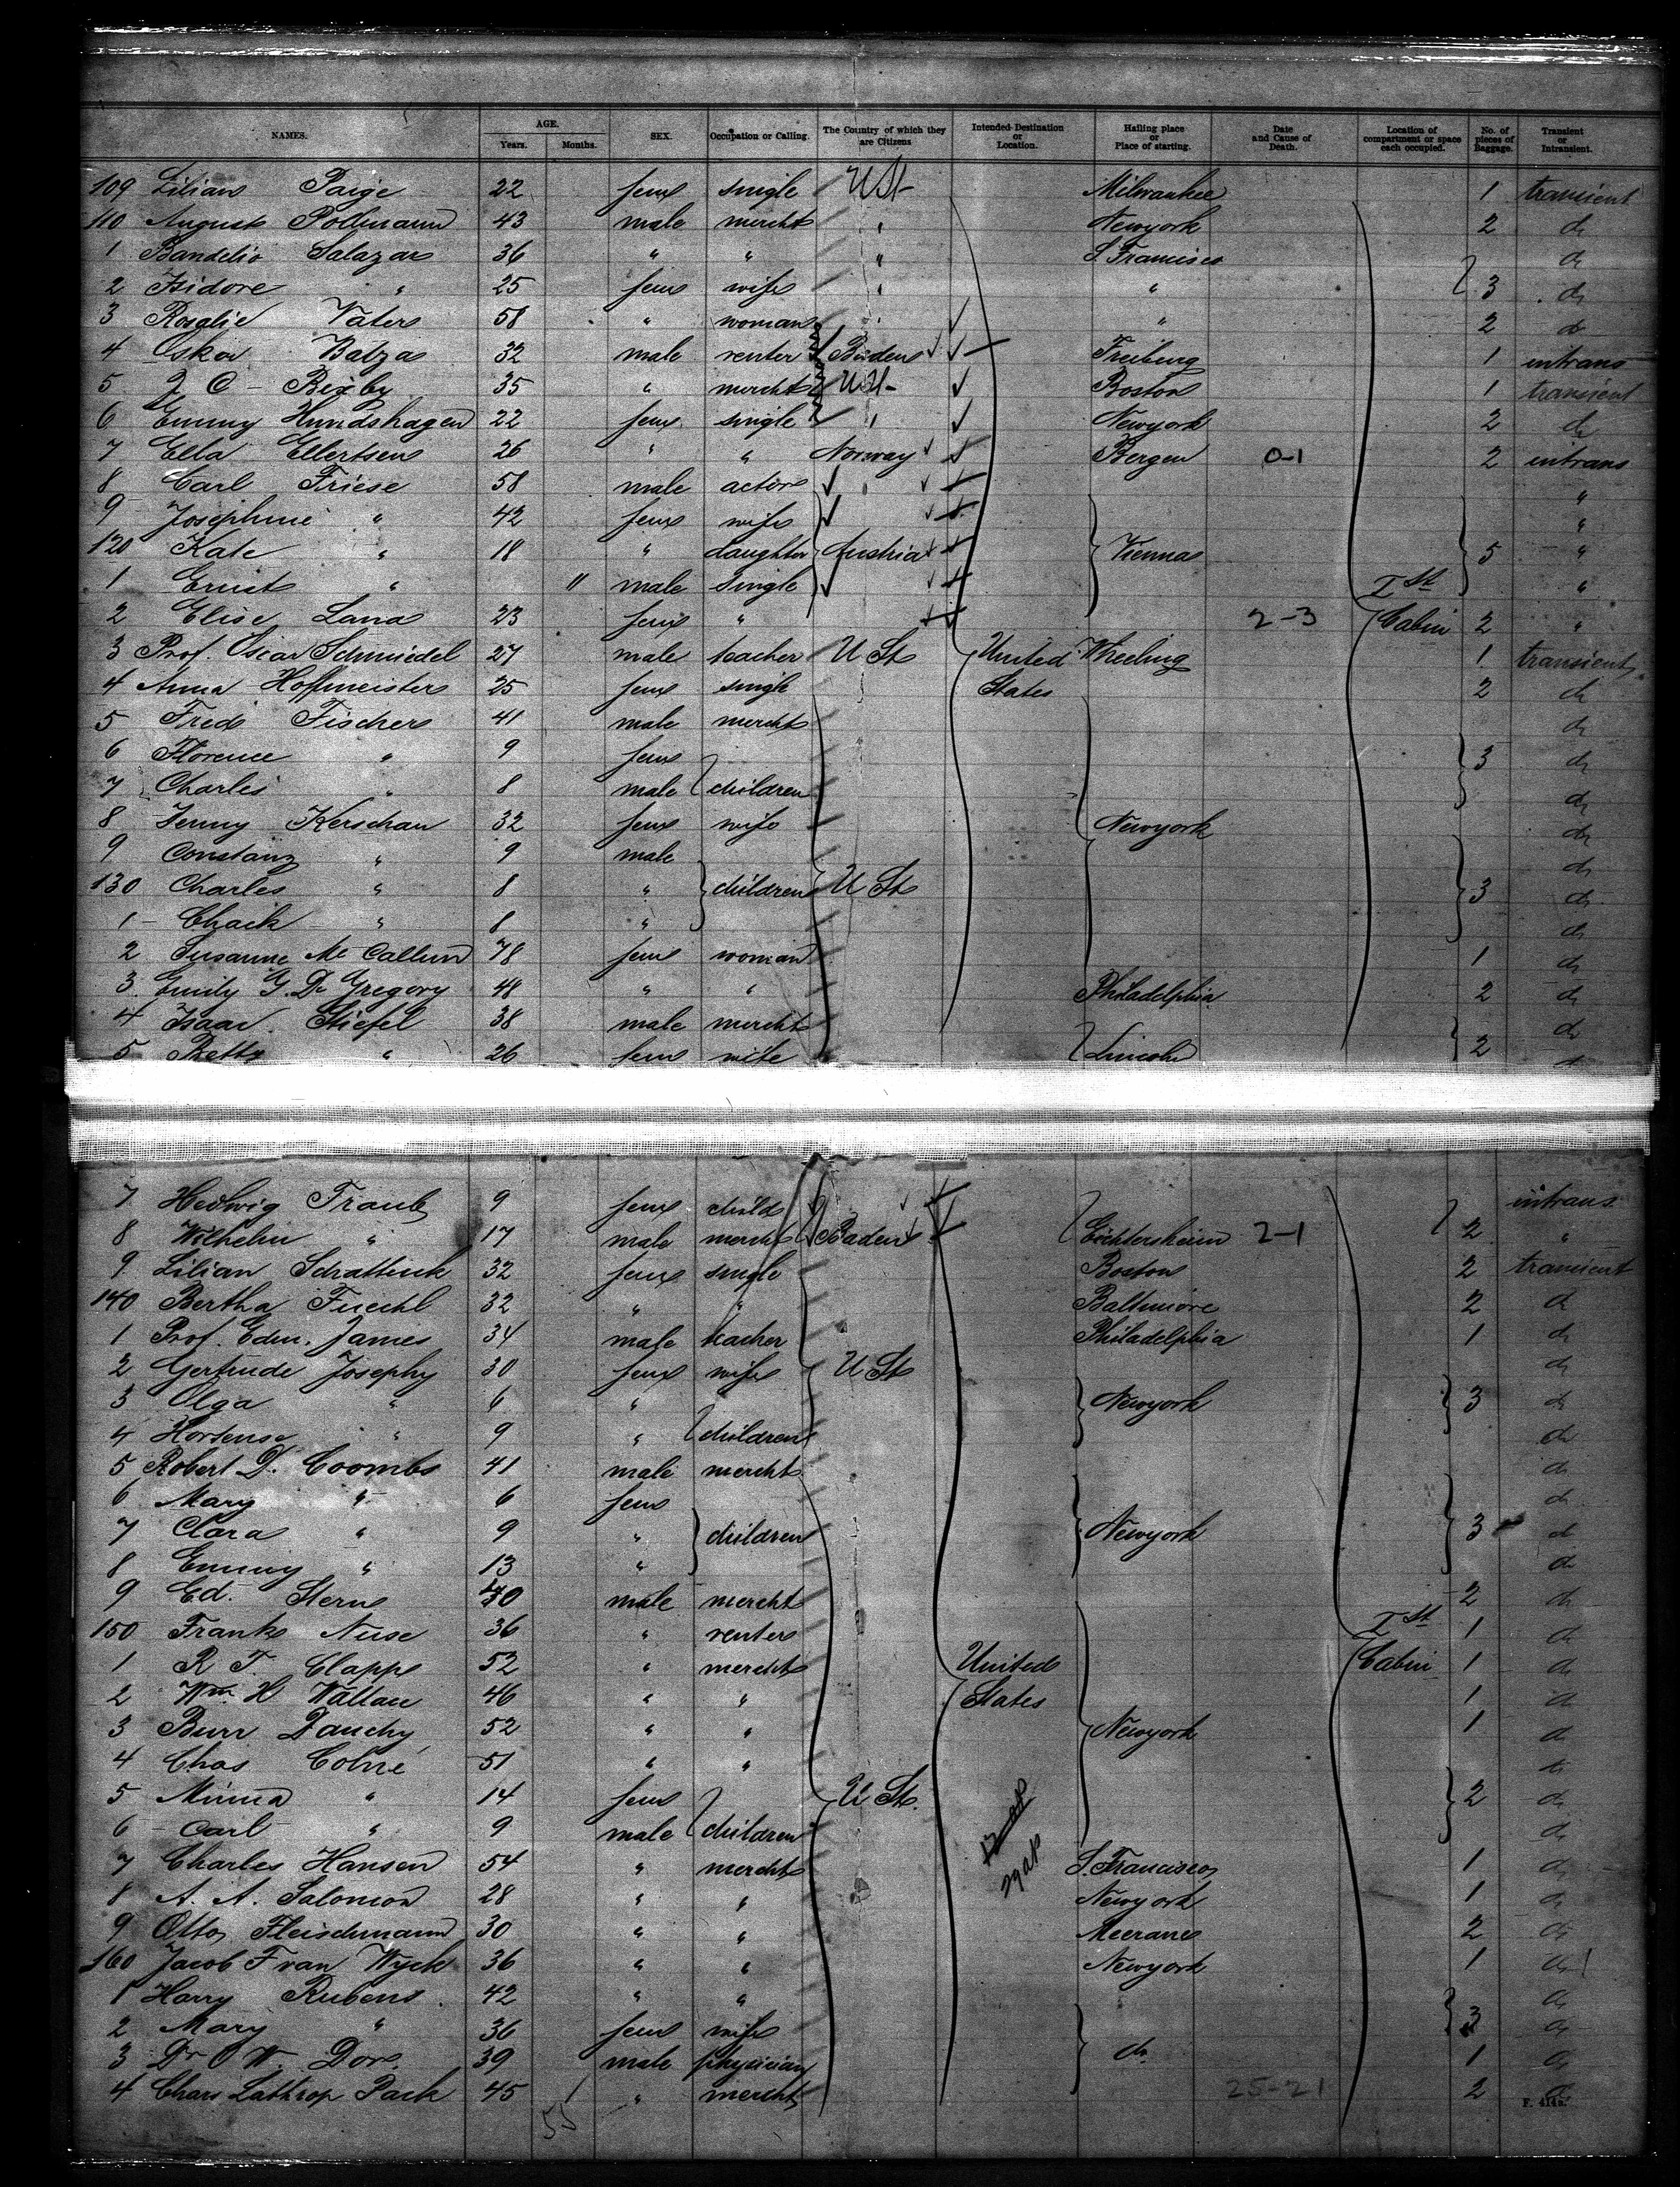 NAMES. AGE. Years. Months. SEX. Occupation or Calling. The Country of which they are Citizens Intended Destination or Location. Hailing place or Place of starting. Date and Cause of Death. Location of compartment or space each occupied. No. of pieces of Baggage. Transient or Intransient.
109 Lilian Paige 22 fem single U St Milwaukee 1 transient
110 August Pollmann 43 male mercht " Newyork 2 do
1 Bandelio Salazar 36 " " " S. Francisco do
2 Isidore " 25 fem wife " " 3 do
3 Rosalie Vater 58 " woman " " 2 do
4 Oskar Balza 32 male renter Baden Freiburg 1 intrans
5 J. C. Bixby 35 " mercht U St Boston 1 transient
6 Emmy Hundshagen 22 fem single " Newyork 2 do
7 Ella Ellertsen 26 " " Norway Bergen 0-1 2 intrans
8 Carl Friese 58 male actor "
9 Josephine " 42 fem wife "
120 Kate " 18 " daughter Austria Vienna 5 "
1 Ernst " 11 male single Ist "
2 Elise Land 23 fem " 2-3 Cabin 2 "
3 Prof. Oscar Schmiedel 27 male teacher U St United Wheeling 1 transient
4 Anna Hoffmeister 25 fem single States 2 do
5 Fred Fischer 41 male mercht do
6 Florence " 9 fem 3 do
7 Charles " 8 male children do
8 Jenny Kerschau 32 fem wife Newyork do
9 Constanz " 9 male do
130 Charles " 8 " children U St 3 do
1 Chack " 8 " do
2 Susanne Mc Callum 78 fem woman 1 do
3 Emily G. De Gregory 48 " " Philadelphia 2 do
4 Isaac Stiefel 38 male mercht do
5 Betty " 26 fem wife Lincoln 2
7 Hedwig Traub 9 fem child intrans.
8 Wilhelm " 17 male mercht Baden Eichtersheim 2-1 2 "
9 Lilian Schattuck 32 fem single Boston 2 transient
140 Bertha Fuechl 32 " " Baltimore 2 do
1 Prof. Edm. James 34 male teacher Philadelphia 1 do
2 Gertrude Josephy 30 fem wife U St do
3 Olga " 6 " Newyork 3 do
4 Hortense " 9 " children do
5 Robert D. Coombs 41 male mercht do
6 Mary " 6 fem do
7 Clara " 9 " children Newyork 3 do
8 Emmy " 13 " do
9 Ed. Stern 40 male mercht 2 do
150 Frank Nuse 36 " renter Ist 1 do
1 R. T. Clapp 52 " mercht United Cabin 1 do
2 Wm H Wallau 46 " " States 1 do
3 Burr Dauchy 52 " " Newyork 1 do
4 Chas Colné 51 " " do
5 Minna " 14 fem U St. 2 do
6 Carl " 9 male children do
7 Charles Hansen 54 " mercht S. Francisco 1 do
8 A. A. Salomon 28 " " Newyork 1 do
9 Otto Fleischmann 30 " " Meerane 2 do
160 Jacob F van Wyck 36 " " Newyork 1 do
1 Harry Rubens 42 " " do
2 Mary " 36 fem wife 3 do
3 Dr O W. Dor. 39 male physician do. 1 do
4 Chars Lathrop Pack 45 " mercht 25-21 2 do
55
F. 414a.